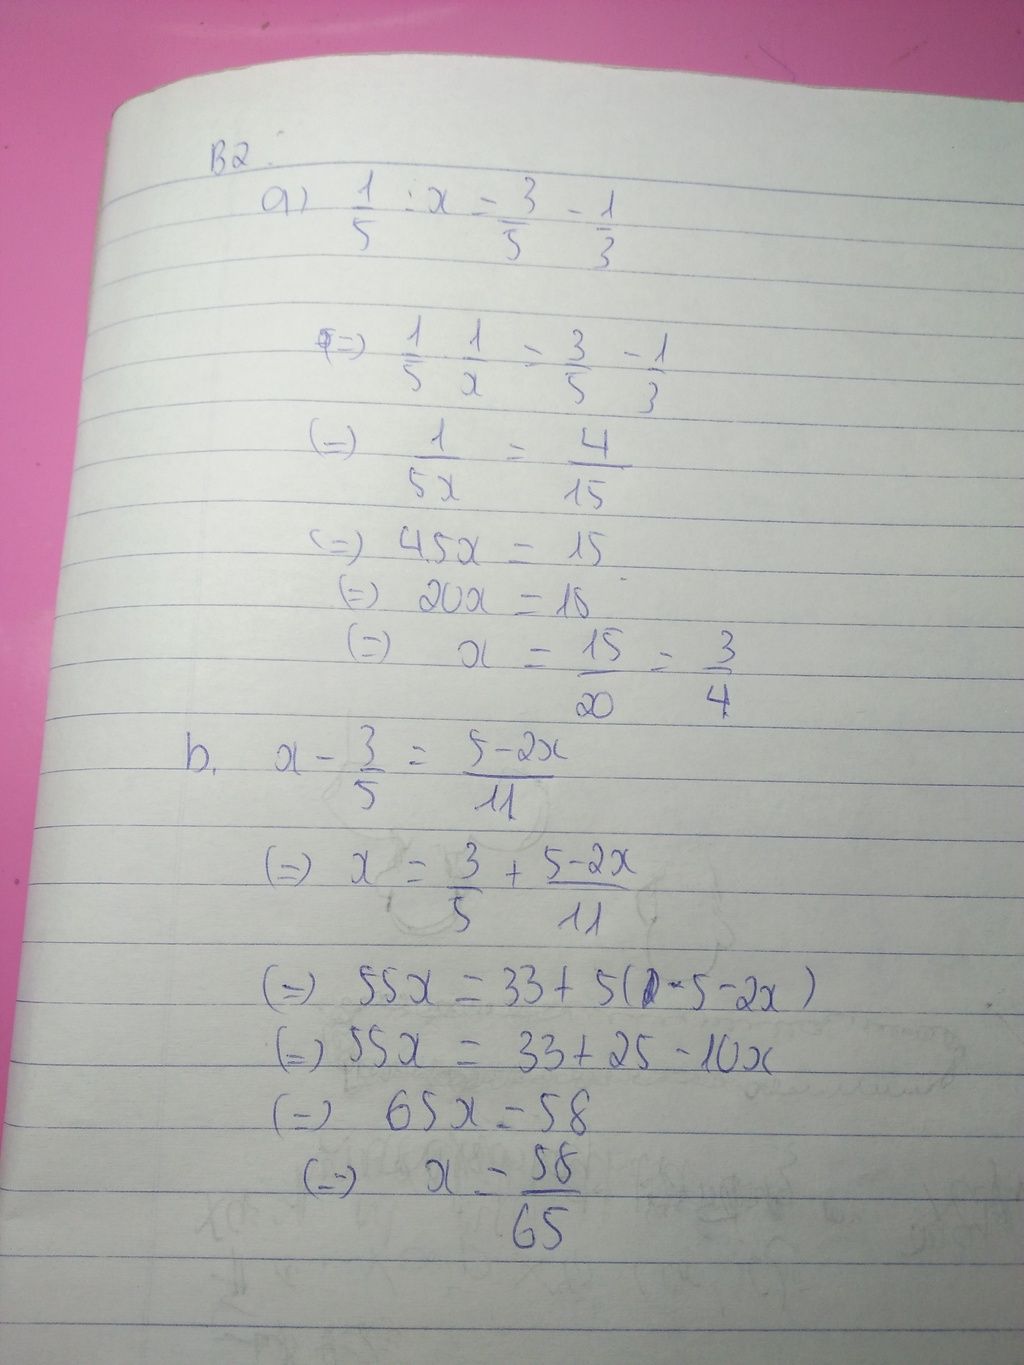 B2
a) 1/5 : x = 3/5 - 1/3
(=) 1/5 1/x = 3/5 - 1/3
(=) 1/5x = 4/15
(=) 4.5x = 15
(=) 20x = 15
(=) x = 15/20 = 3/4
b. x - 3/5 = 5-2x/11
(=) x = 3/5 + 5-2x/11
(=) 55x = 33 + 5(5-2x)
(=) 55x = 33 + 25 - 10x
(=) 65x = 58
(=) x = 58/65